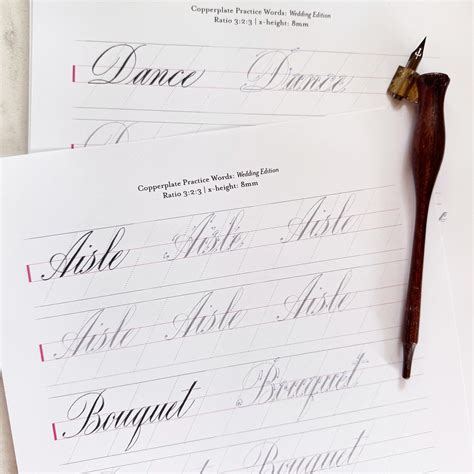 Copperplate Practice Words: Wedding Edition
Ratio 3:2:3 | x-height: 8mm
Dance Dance
Copperplate Practice Words: Wedding Edition
Ratio 3:2:3 | x-height: 8mm
Aisle Aisle Aisle
Aisle Aisle Aisle
Bouquet Bouquet